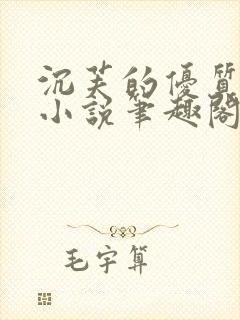 沉芙的優質
小說筆趣閣
毛宇算